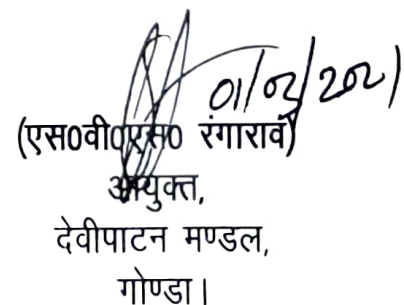 01/02/2021
(एस0वी0एस0 रंगाराव)
आयुक्त,
देवीपाटन मण्डल,
गोण्डा।